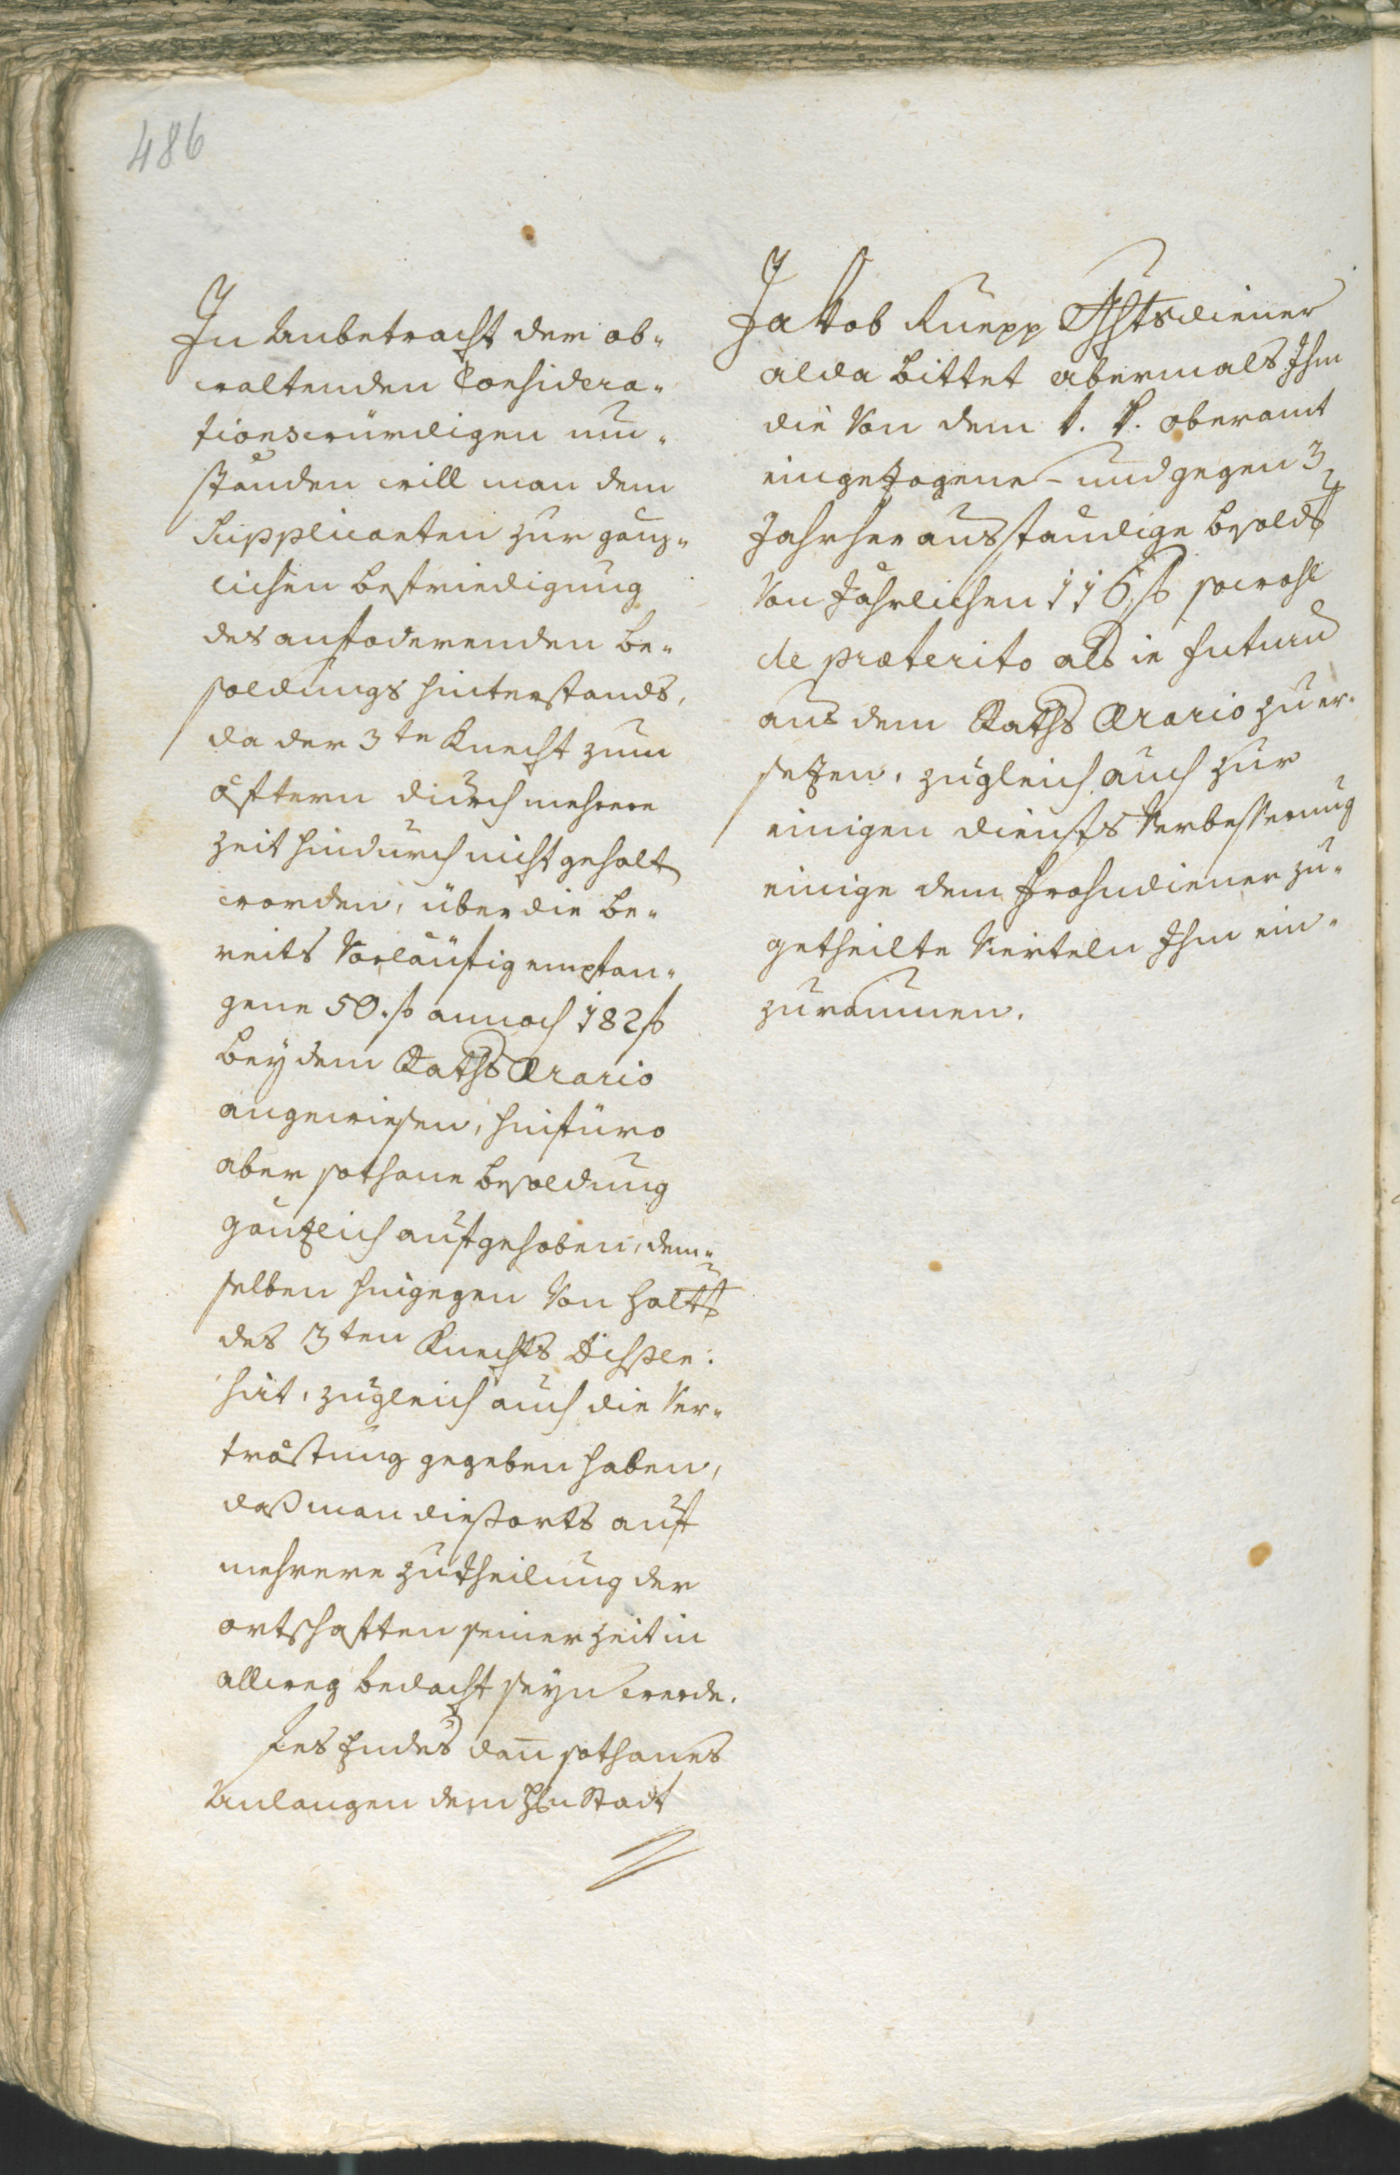 486
In Anbetracht der ob-
waltenden Considera-
tionswürdigen um-
ständen will man dem
Supplicanten zur gänz-
lichen befriedigung
des anfoderenden be-
soldungs hinterstands,
da der 3te Knecht zum
öfttern durch mehrere
Zeit hindurch nicht gehalt
worden, über die be-
reits Vorläufig empfan-
gene 50. f annoch 182 f
bey dem Raths Ærario
angewiesen, hinfüro
aber sothane besoldung
gäntzlich aufgehoben, dem-
selben hingegen Von Halts
des 3ten Knechts
hirt, zugleich auch die Ver-
tröstung gegeben haben,
daß man dießorts auf
mehrere zutheilung der
ortschafften seiner Zeit in
allweg bedacht seyn werde.
Endes dan̄ sothanes
Anlangen dem Hn Stadt
Jakob Ruepp Ghtsdiener
alda bittet abermals Ihm
die Von dem k. k. oberamt
eingezogene - und gegen 3
Jahr her ausständige besold
Von Jährlichen 116 f sowohl
de præterito als in futuru
aus dem Raths Ærario zu er-
setzen, zugleich auch zur
einigen diensts Verbesserung
einige dem Frohndiener zu-
getheilte Vierteln Ihm ein-
zuraumen.